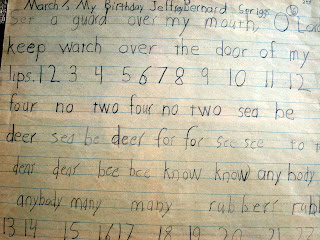 March My Birthday Jeffrey Bernard Scriggs
Set a guard over my mouth, O Lord
keep watch over the door of my
lips. 1 2 3 4 5 6 7 8 9 10 11 12
four no two four no two sea be
deer sea be deer for for see see to
dear dear bee bee know know any body
anybody many many rubbers
13 14 15 16 17 18 19 20 21 22